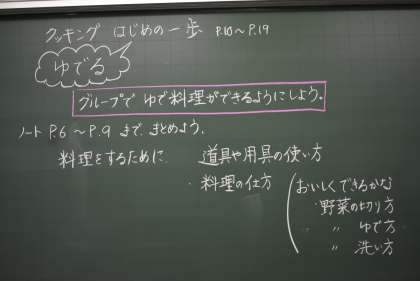 クッキング はじめの一歩 P.10~P.19
ゆでる
グループで ゆで料理ができるようにしよう。
ノート P.6 ~ P.9 まで、まとめよう。
料理をするために 道具や用具の使い方
・料理の仕方
おいしくできるかな
・野菜の切り方
・ 〃 ゆで方
〃 洗い方